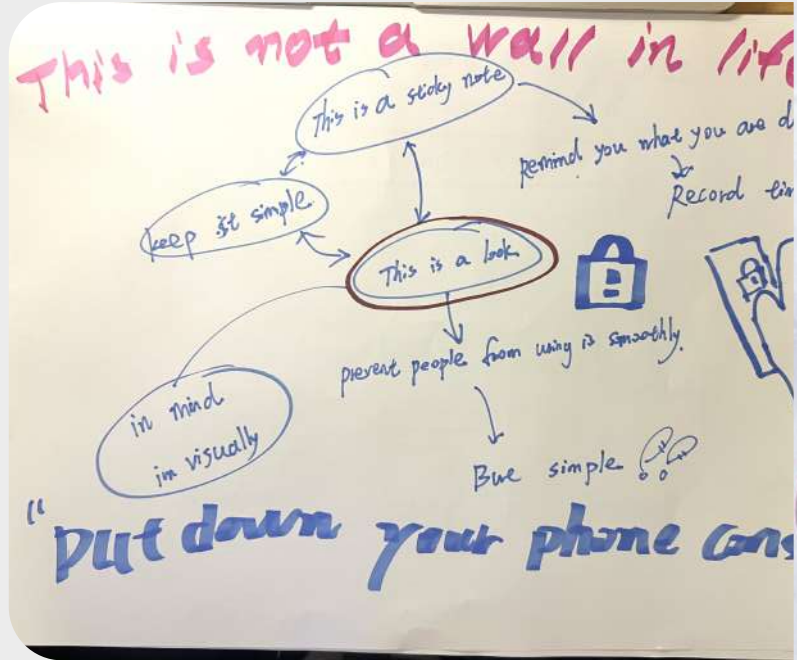 This is not a wall in life
This is a sticky note
Remind you what you are d
Record tim
keep it simple
This is a lock
prevent people from using is smoothly.
in mind
in visually
Bue simple
"put down your phone cons